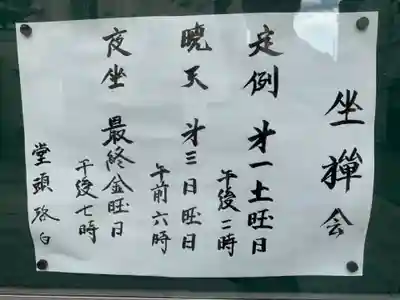 坐禅会
定例 第一土旺日
午後二時
暁天 第三日旺日
午前六時
夜坐 最終金旺日
午後七時
堂頭啓白